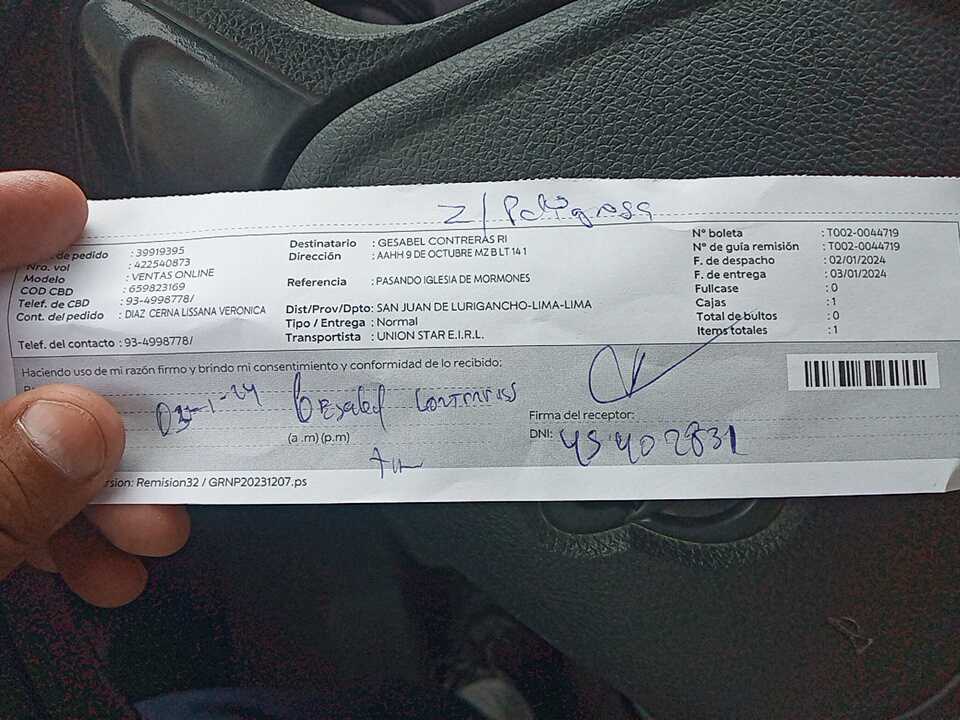 Z/ Peligrosa
de pedido : 39919395
Nro. vol : 422540873
Modelo : VENTAS ONLINE
COD CBD : 659823169
Telef. de CBD : 93-4998778/
Cont. del pedido : DIAZ CERNA LISSANA VERONICA
Telef. del contacto : 93-4998778/
Destinatario : GESABEL CONTRERAS RI
Dirección : AAHH 9 DE OCTUBRE MZ B LT 14 1
Referencia : PASANDO IGLESIA DE MORMONES
Dist/Prov/Dpto: SAN JUAN DE LURIGANCHO-LIMA-LIMA
Tipo / Entrega : Normal
Transportista : UNION STAR E.I.R.L.
N° boleta : T002-0044719
N° de guía remisión : T002-0044719
F. de despacho : 02/01/2024
F. de entrega : 03/01/2024
Fullcase : 0
Cajas : 1
Total de bultos : 0
Items totales : 1
Haciendo uso de mi razón firmo y brindo mi consentimiento y conformidad de lo recibido:
Gesabel Contreras
(a .m) (p.m)
Firma del receptor:
DNI: 45402831
sion: Remision32 / GRNP20231207.ps